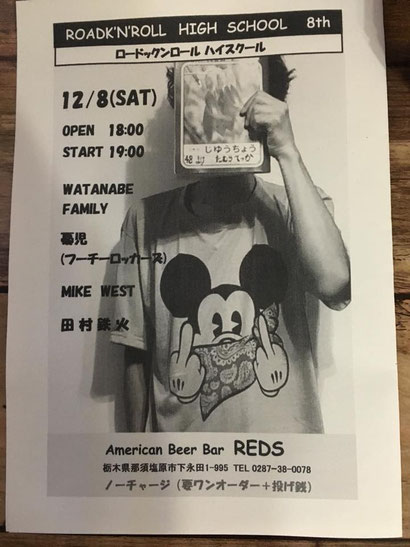 ROADK'N'ROLL HIGH SCHOOL 8th
ロードックンロール ハイスクール
12/8(SAT)
OPEN 18:00
START 19:00
WATANABE
FAMILY
(フーチーロッカーズ)
MIKE WEST
田村鉄火
じゆうちょう
American Beer Bar REDS
栃木県那須塩原市下永田1-995 TEL 0287-38-0078
ノーチャージ (要ワンオーダー+投げ銭)